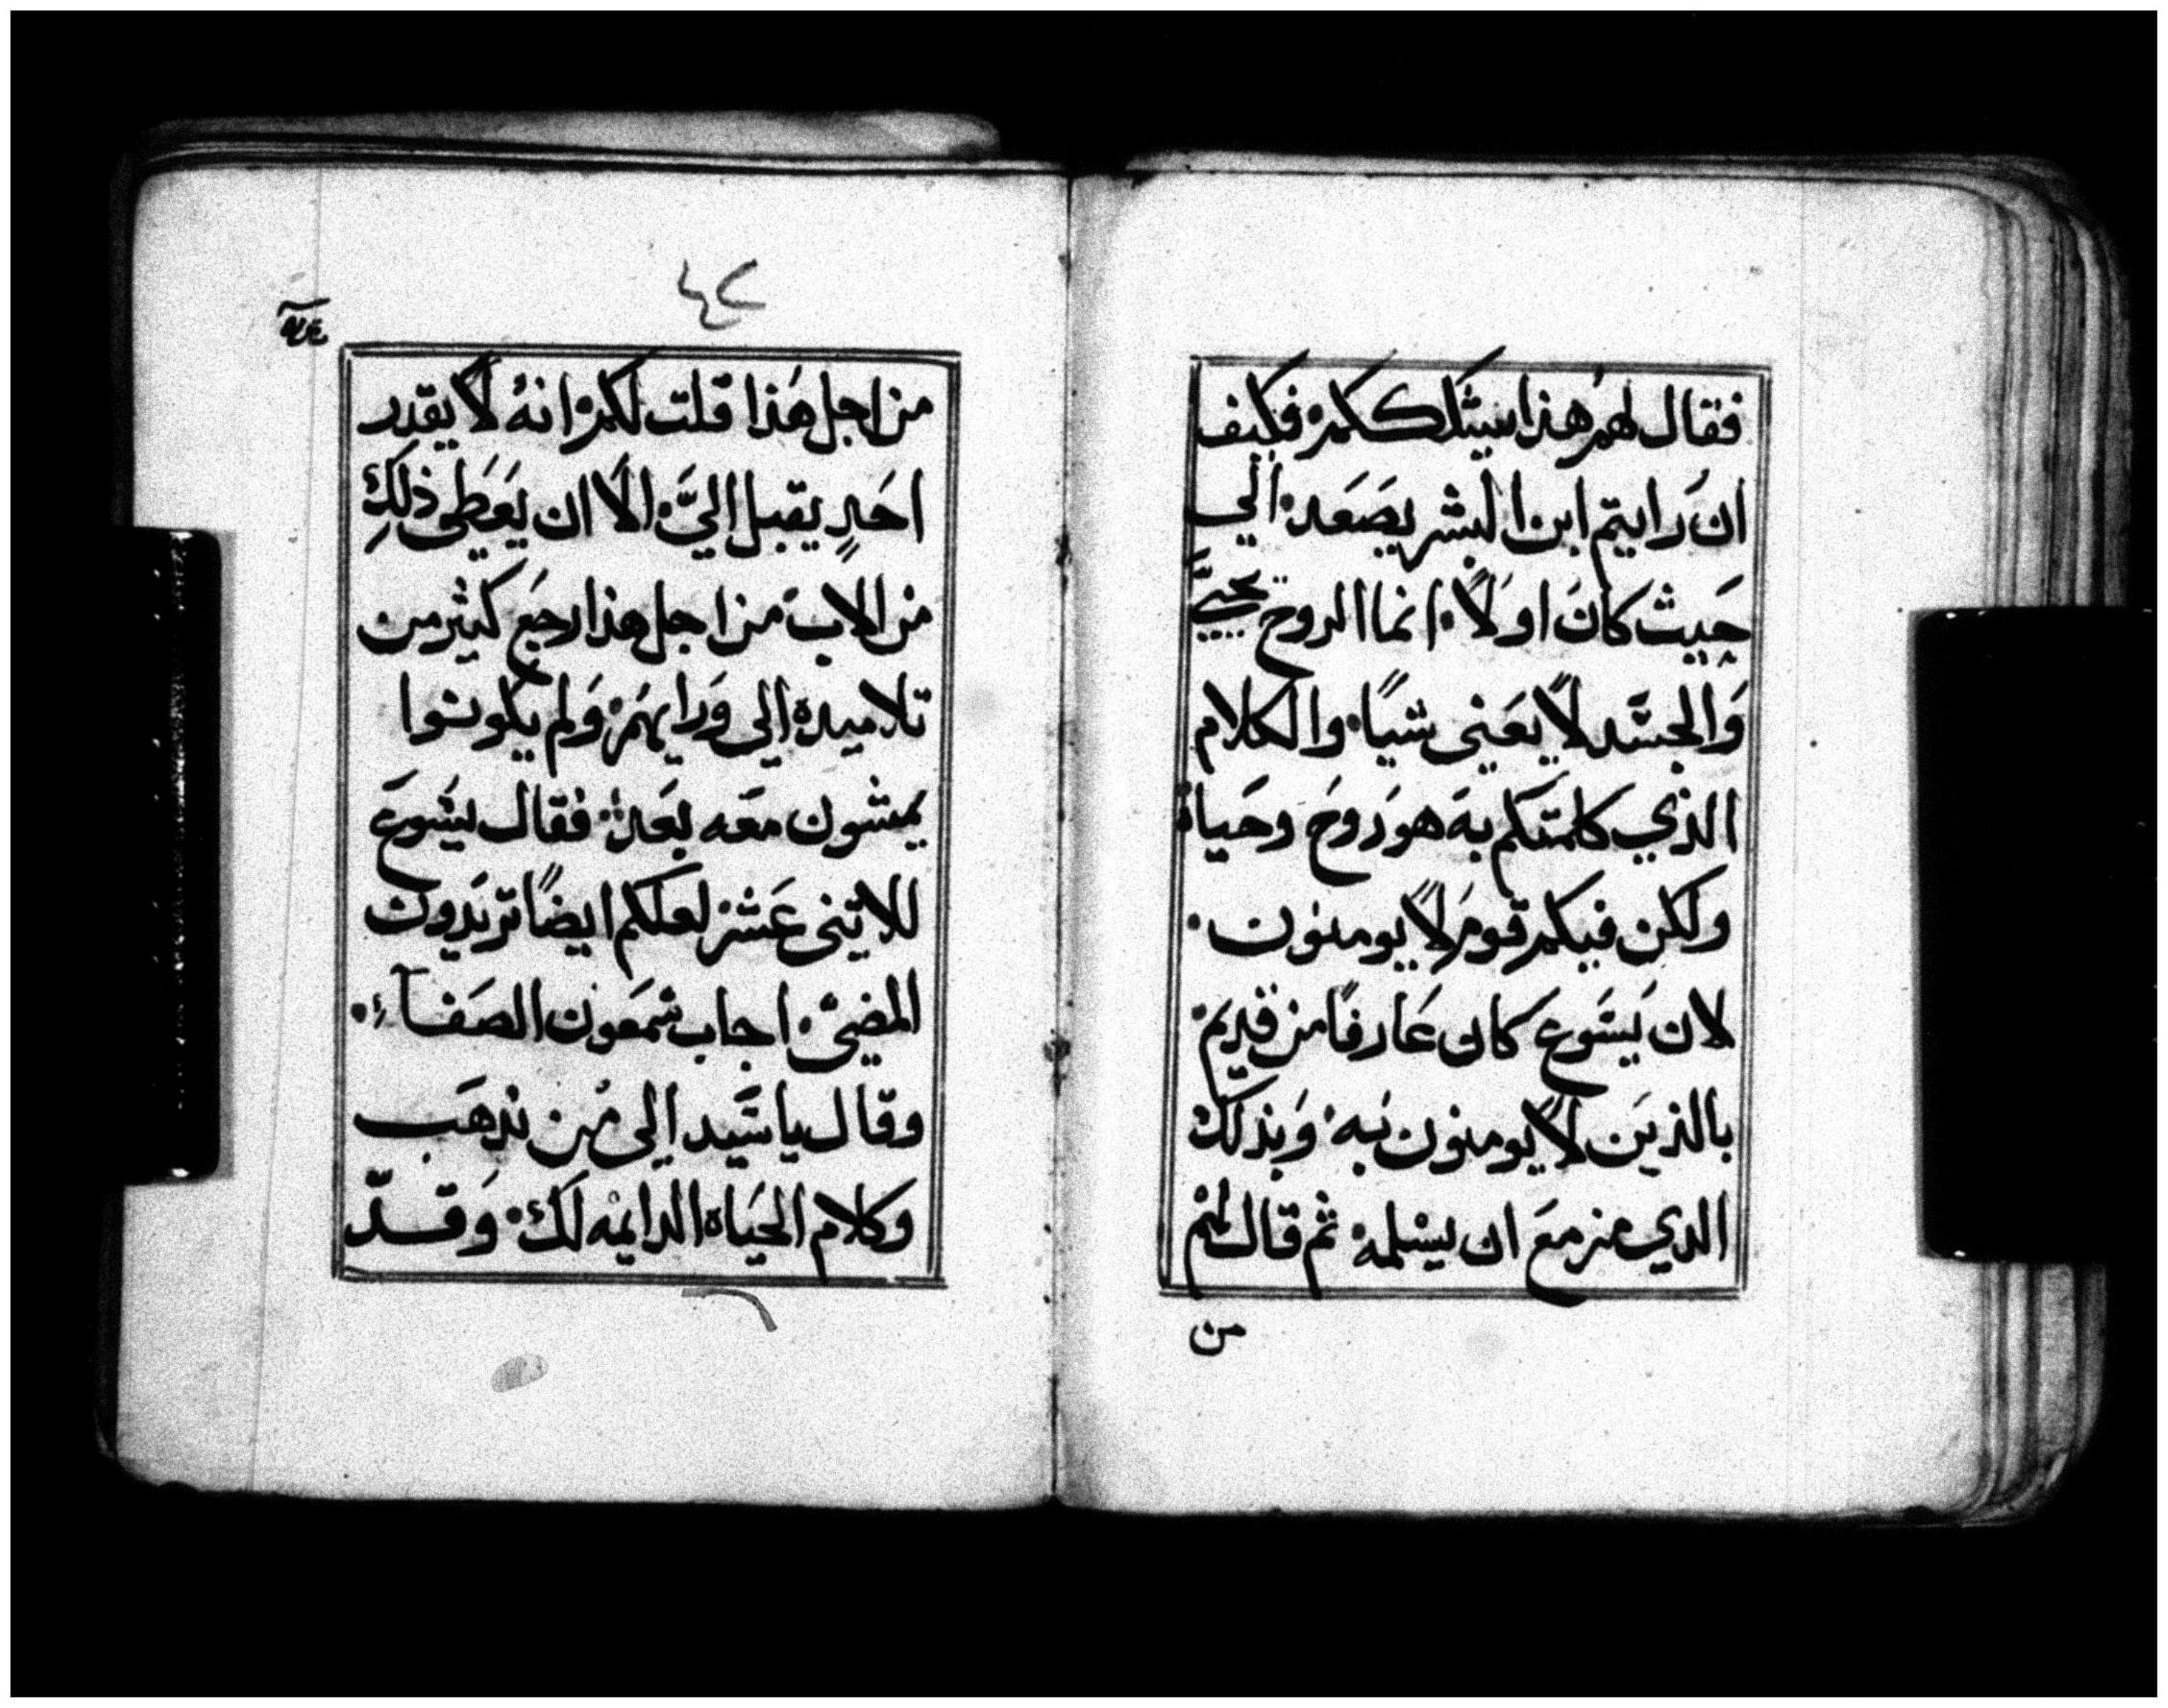 فقال لهم هذا يشككم فكيف
ان رايتم ابن البشر يصعد الي
حيث كان اولاً انما الروح تحيي
والجسد لا يعني شياً والكلام
الذي كلمتكم به هو روح وحياة
ولكن فيكم قوم لا يومنون
لان يسوع كان عارفاً من قديم
بالذين لا يومنون به وبذلك
الدي مزمع ان يسلمه ثم قال لهم
من
٤٢
من اجل هذا قلت لكم انه لا يقدر
احدٍ يقبل اليَّ الا ان يعطى ذلك
من الاب من اجل هذا رجع كثير من
تلاميده الى ورايهم ولم يكونوا
يمشون معه بعد فقال يسوع
للاثنى عشر لعلكم ايضاً تريدون
المضيّ اجاب شمعون الصفاء
وقال يا سيد الى من ندهب
وكلام الحياه الدايمه لك وقد